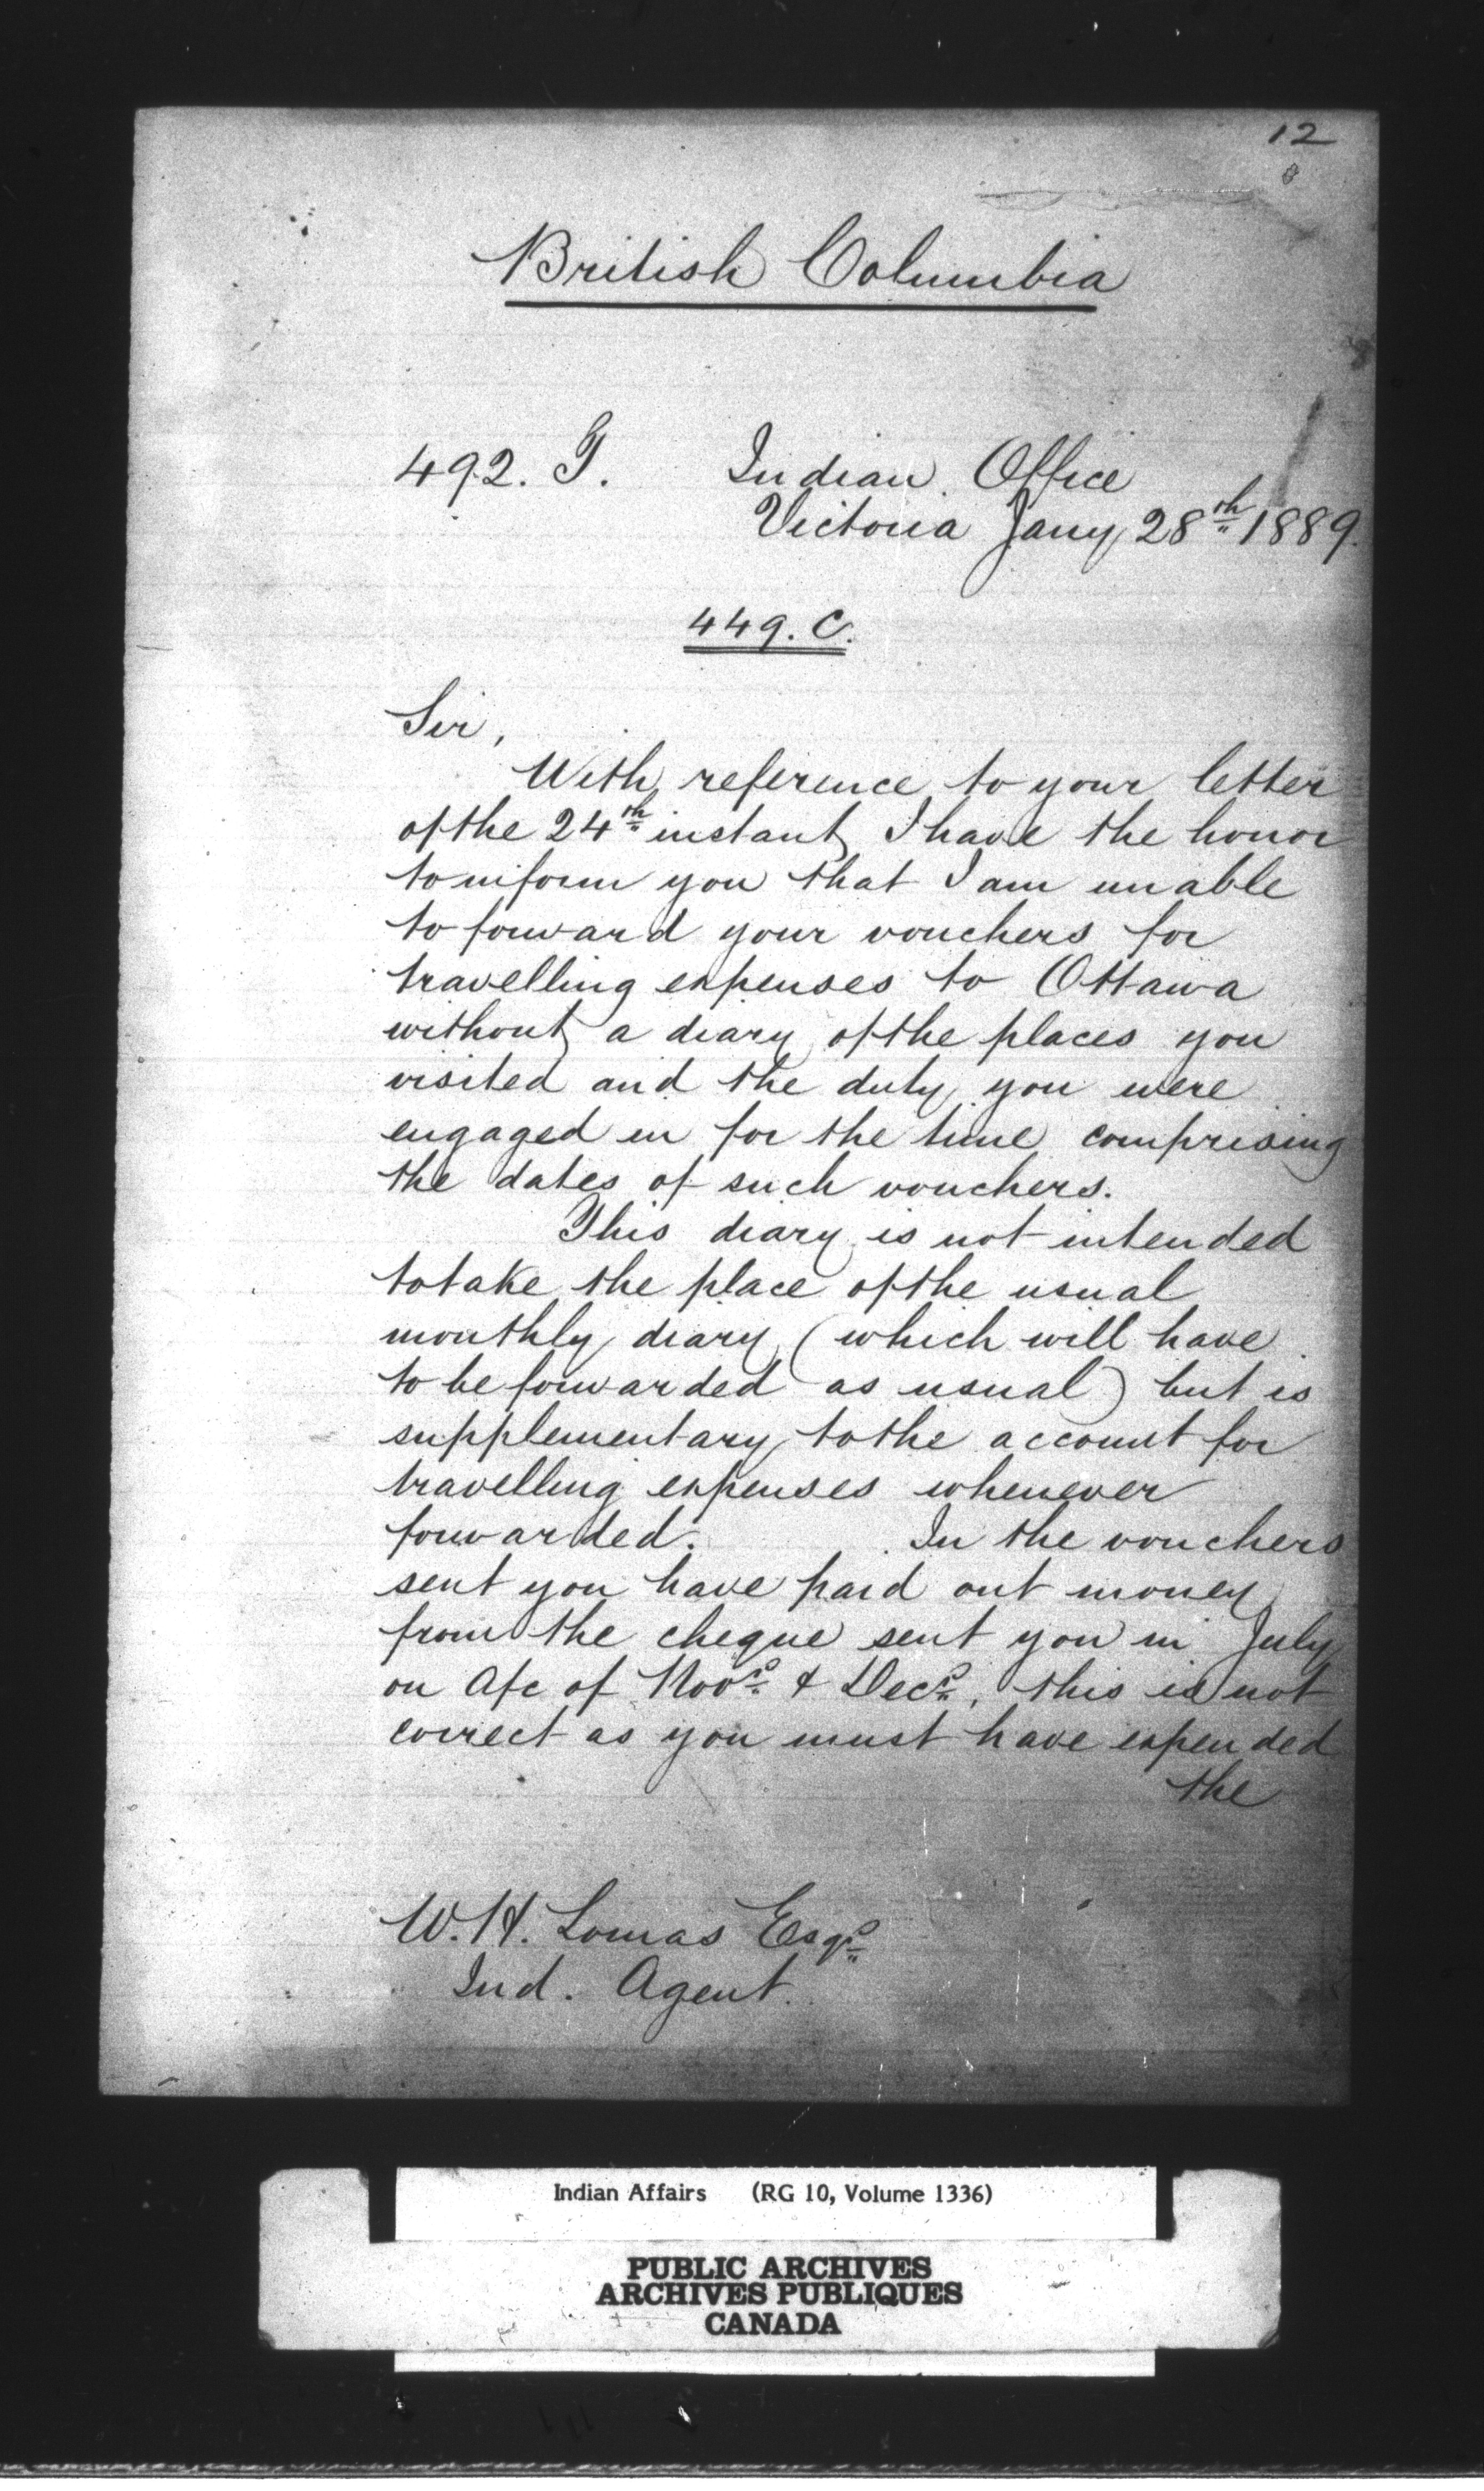 12
British Columbia
492. G. Indian Office
Victoria Jany 28th 1889.
449. C.
Sir,
With reference to your letter
of the 24th instant I have the honor
to inform you that I am unable
to forward your vouchers for
travelling expenses to Ottawa
without a diary of the places you
visited and the duty you were
engaged in for the time comprising
the dates of such vouchers.
This diary is not intended
to take the place of the usual
monthly diary (which will have
to be forwarded as usual) but is
supplementary to the account for
travelling expenses whenever
forwarded. In the vouchers
sent you have paid out money
from the cheque sent you in July
on A/c of Novr & Decr, this is not
correct as you must have expended
the
W. H. Lomas Esqr
Ind. Agent.
Indian Affairs (RG 10, Volume 1336)
PUBLIC ARCHIVES
ARCHIVES PUBLIQUES
CANADA